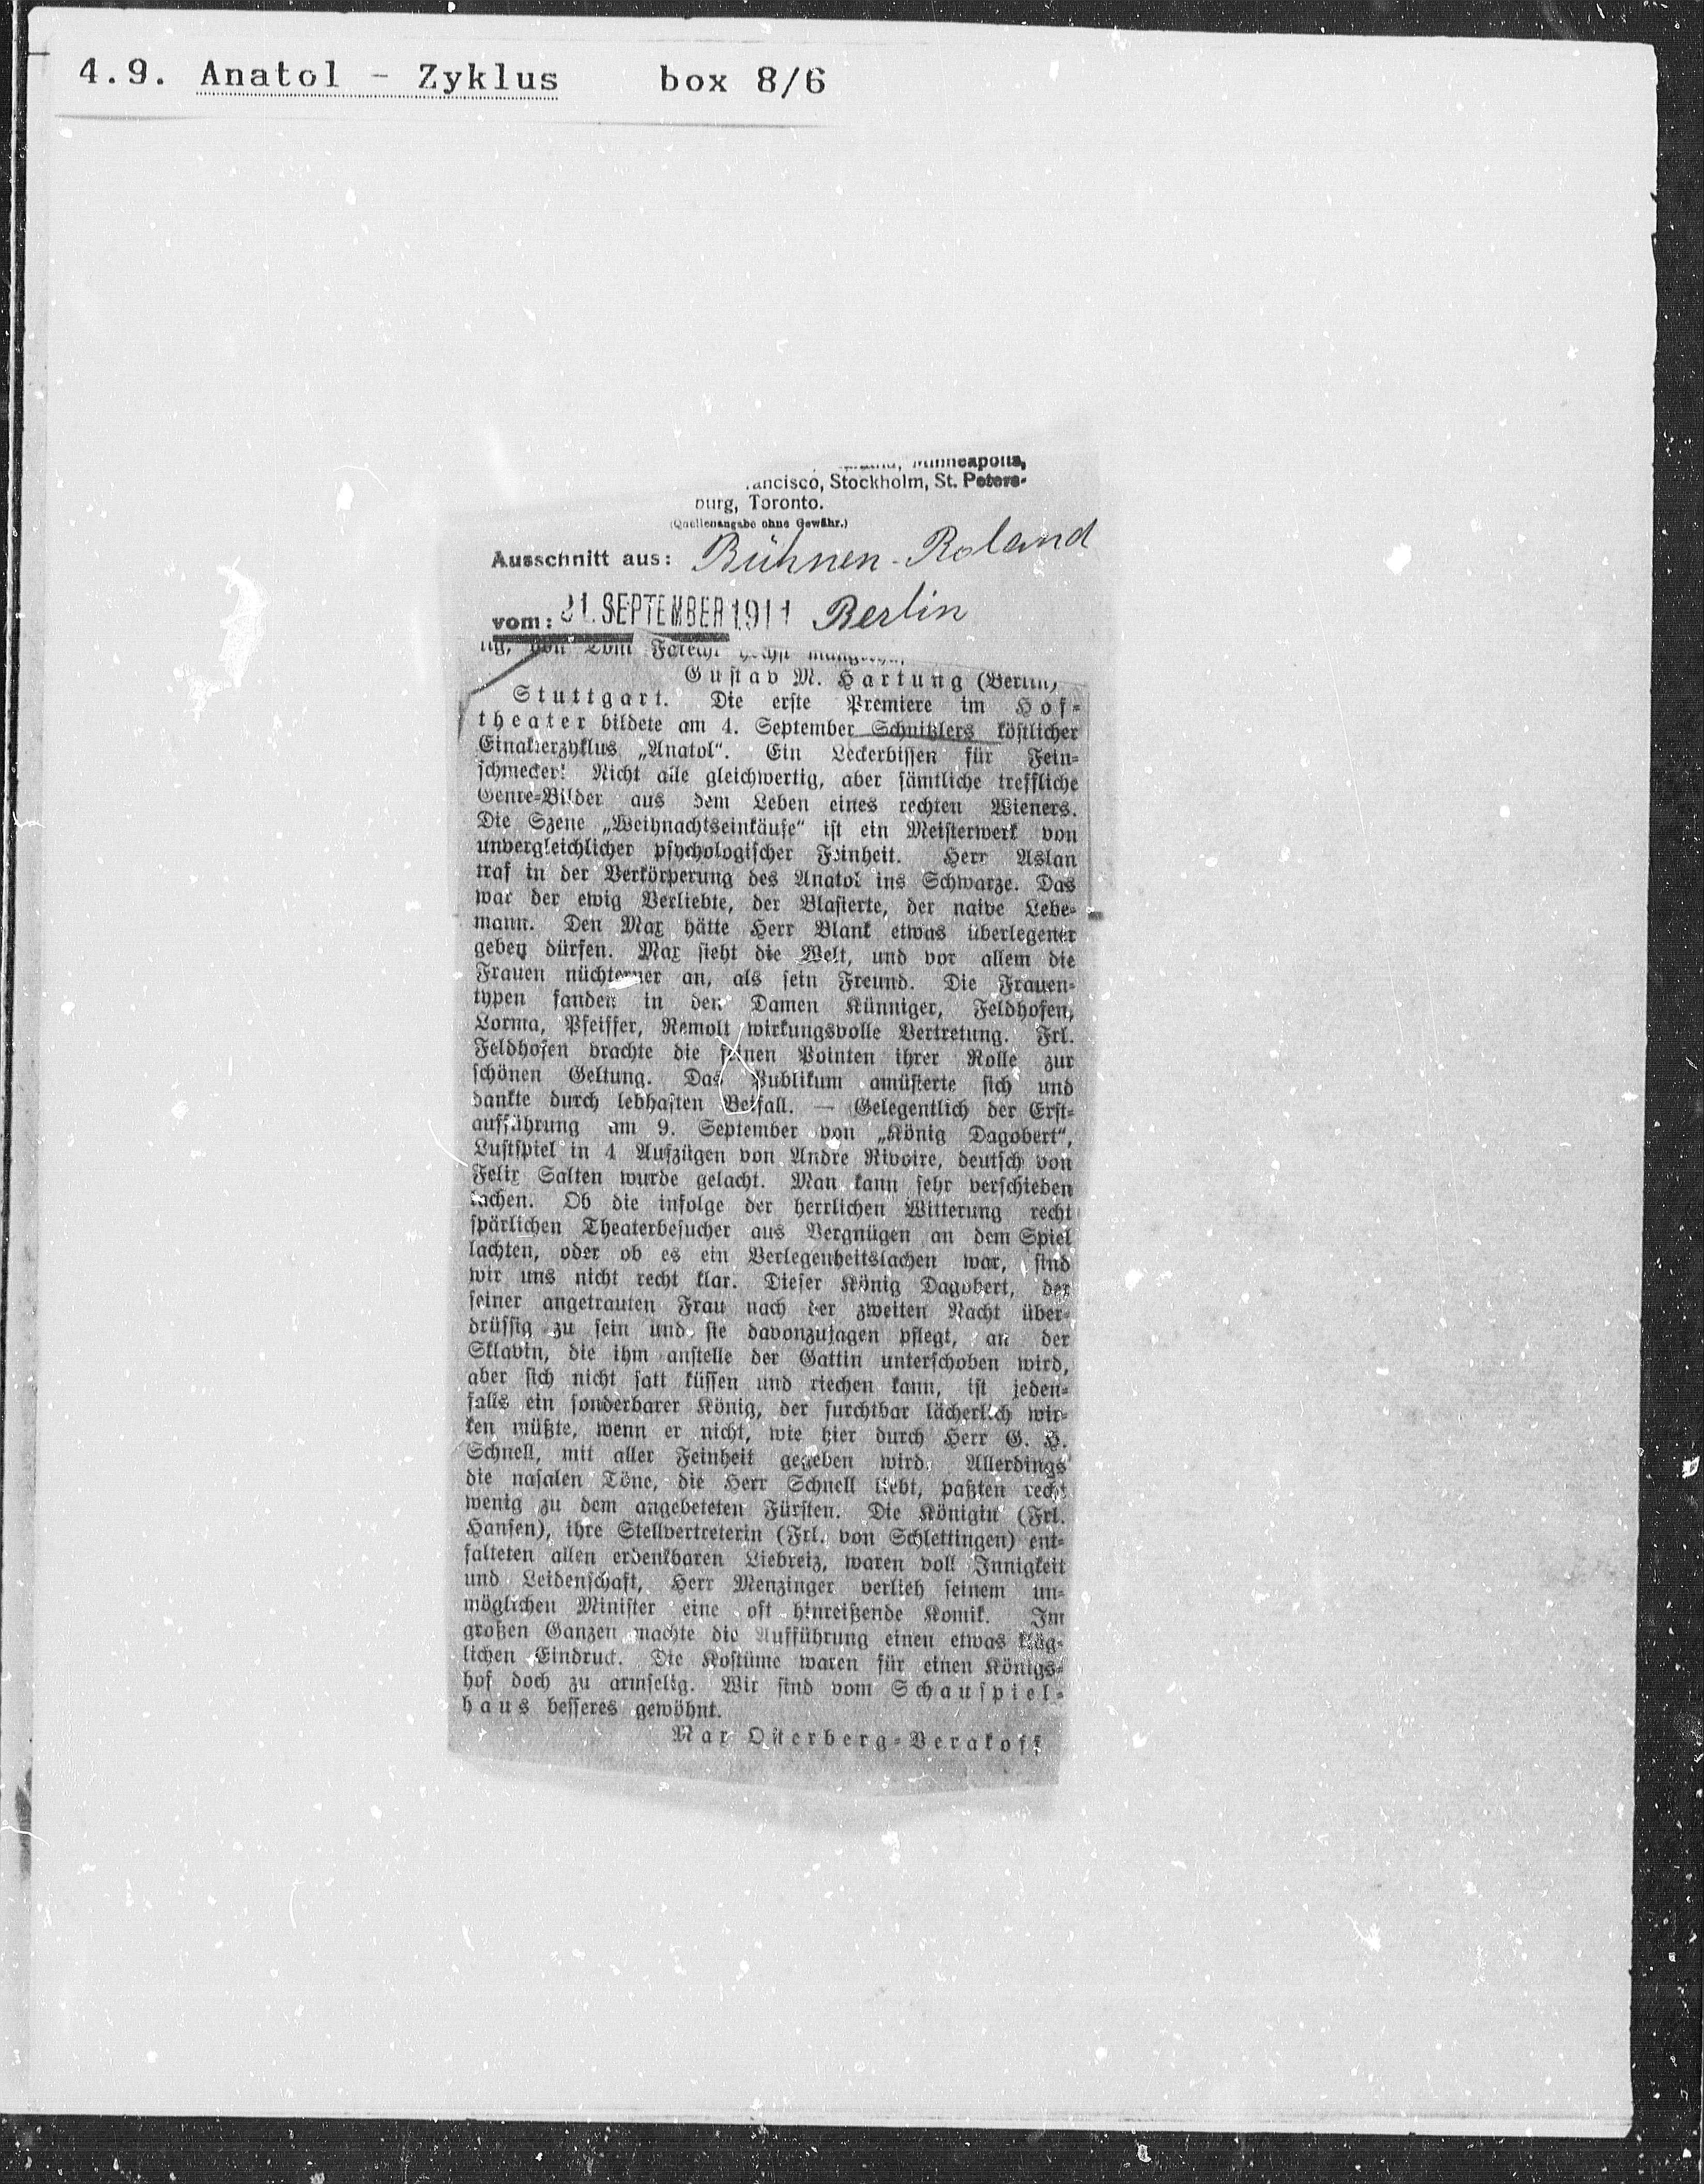 4.9. Anatol - Zyklus box 8/6
Minneapolis,
ancisco, Stockholm, St. Peters-
burg, Toronto.
(Quellenangabe ohne Gewähr.)
Ausschnitt aus: Bühnen-Roland
vom: 21. SEPTEMBER 1911 Berlin
Gustav M. Hartung (Berlin)
Stuttgart. Die erste Premiere im Hof-
theater bildete am 4. September Schnitzlers köstlicher
Einakterzyklus „Anatol“. Ein Leckerbissen für Fein-
schmecker! Nicht alle gleichwertig, aber sämtliche treffliche
Genre-Bilder aus dem Leben eines rechten Wieners.
Die Szene „Weihnachtseinkäufe“ ist ein Meisterwerk von
unvergleichlicher psychologischer Feinheit. Herr Aslan
traf in der Verkörperung des Anatol ins Schwarze. Das
war der ewig Verliebte, der Blasierte, der naive Lebe-
mann. Den Max hätte Herr Blank etwas überlegener
geben dürfen. Max sieht die Welt, und vor allem die
Frauen nüchterner an, als sein Freund. Die Frauen-
typen fanden in den Damen Künniger, Feldhofen,
Lorma, Pfeiffer, Remolt wirkungsvolle Vertretung. Frl.
Feldhofen brachte die feinen Pointen ihrer Rolle zur
schönen Geltung. Das Publikum amüsierte sich und
dankte durch lebhaften Beifall. — Gelegentlich der Erst-
aufführung am 9. September von „König Dagobert“,
Lustspiel in 4 Aufzügen von Andre Rivoire, deutsch von
Felix Salten wurde gelacht. Man kann sehr verschieden
lachen. Ob die infolge der herrlichen Witterung recht
spärlichen Theaterbesucher aus Vergnügen an dem Spiel
lachten, oder ob es ein Verlegenheitslachen war, sind
wir uns nicht recht klar. Dieser König Dagobert, der
seiner angetrauten Frau nach der zweiten Nacht über-
drüssig zu sein und sie davonzujagen pflegt, an der
Sklavin, die ihm anstelle der Gattin unterschoben wird,
aber sich nicht satt küssen und riechen kann, ist jeden-
falls ein sonderbarer König, der furchtbar lächerlich wir-
ken müßte, wenn er nicht, wie hier durch Herr G. H.
Schnell, mit aller Feinheit gegeben wird. Allerdings
die nasalen Töne, die Herr Schnell liebt, paßten recht
wenig zu dem angebeteten Fürsten. Die Königin (Frl.
Hansen), ihre Stellvertreterin (Frl. von Schlettingen) ent-
falteten allen erdenkbaren Liebreiz, waren voll Innigkeit
und Leidenschaft, Herr Menzinger verlieh seinem un-
möglichen Minister eine oft hinreißende Komik. Im
großen Ganzen machte die Aufführung einen etwas kläg-
lichen Eindruck. Die Kostüme waren für einen Königs-
hof doch zu armselig. Wir sind vom Schauspiel-
haus besseres gewöhnt.
Max Osterberg-Verakoff